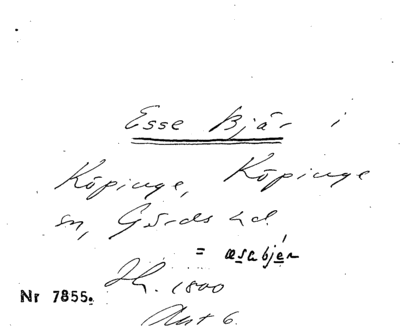 Esse Bjär i
Köpinge, Köpinge
sn, Gärds hd.
= æsabjér
Jh. 1800
Akt 6.
Nr 7855.